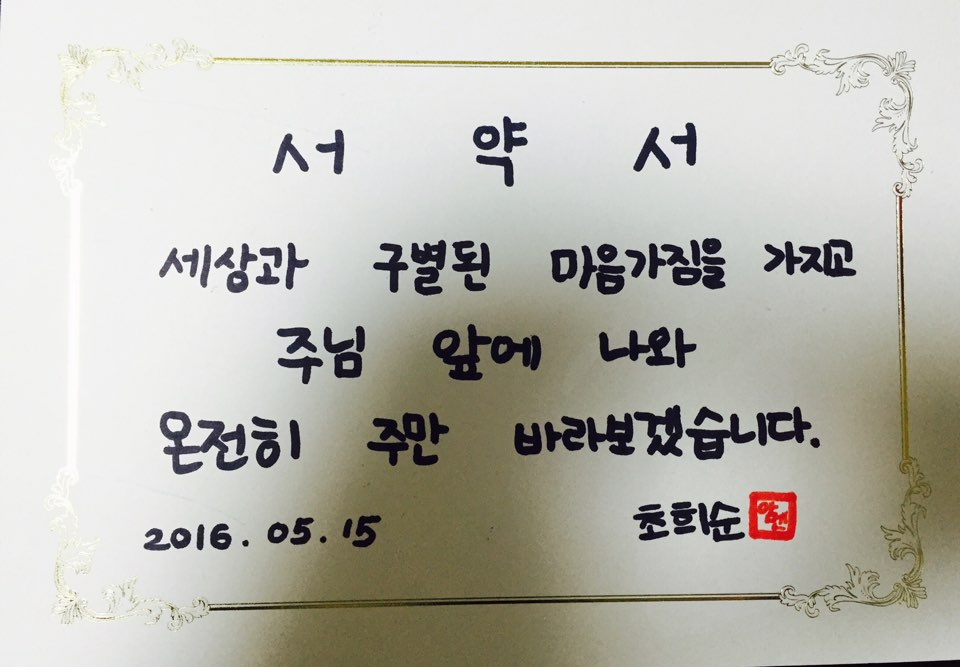 서 약 서
세상과 구별된 마음가짐을 가지고
주님 앞에 나와
온전히 주만 바라보겠습니다.
2016. 05. 15 초희순